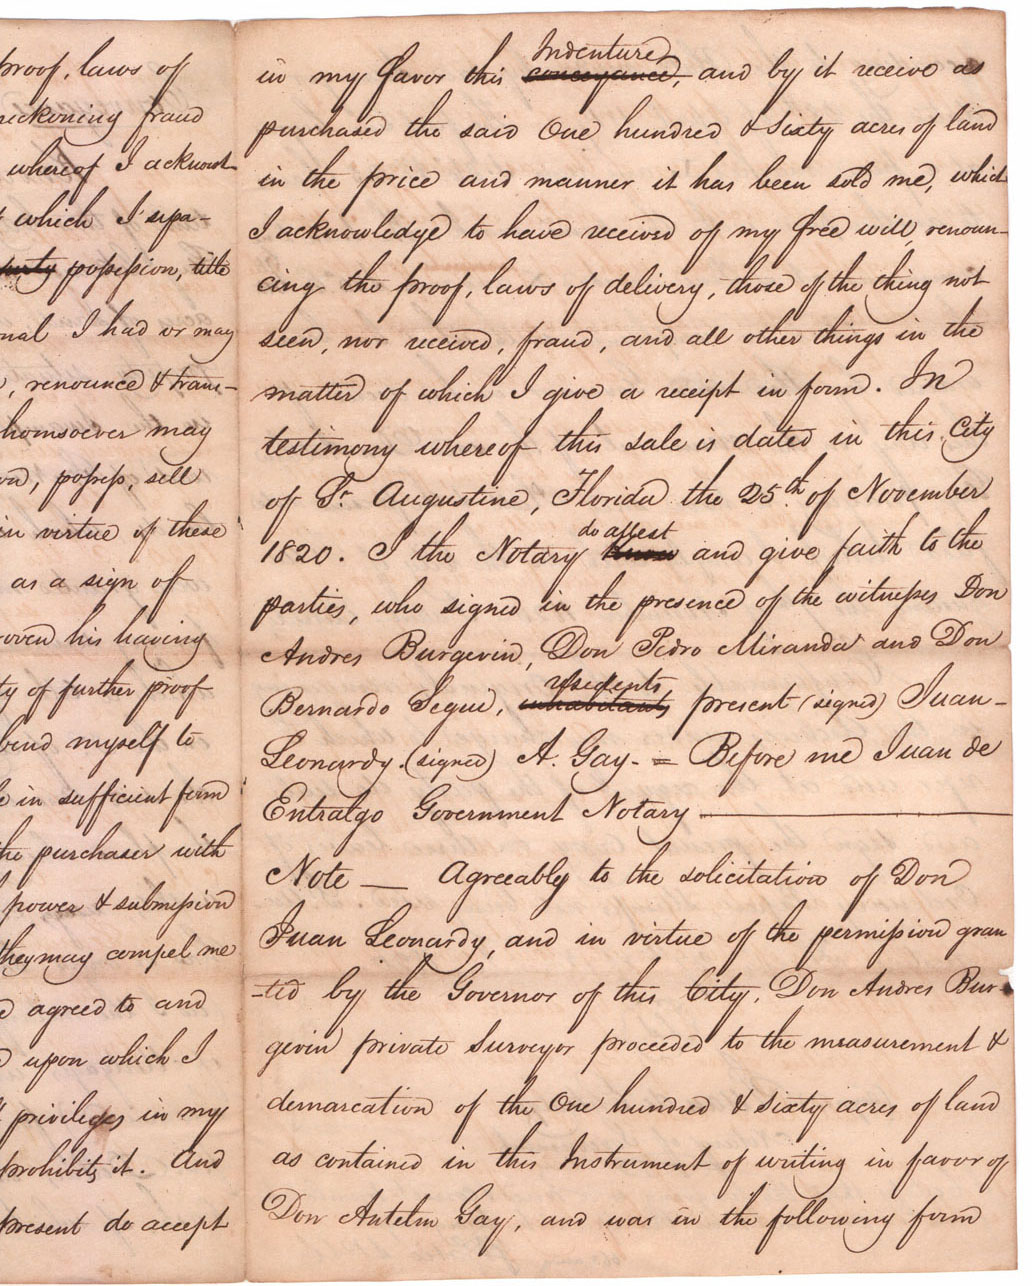 proof, laws of
reckoning fraud
whereof I acknowl-
which I sepa-
party possession, title
I had or may
renounce & trans-
whomsoever may
possess, sell
in virtue of these
as a sign of
proven his having
of further proof
bind myself to
in sufficient form
the purchaser with
power & submission
they may compel me
agreed to and
upon which I
privileges in my
prohibits it. And
present do accept
in my favor this conveyance, Indenture, and by it receive as
purchased the said One hundred & sixty acres of land
in the price and manner it has been sold me, which
I acknowledge to have received of my free will, renoun-
cing the proof, laws of delivery, those of the thing not
seen, nor received, fraud, and all other things in the
matter of which I give a receipt in form. In
testimony whereof this sale is dated in this City
of St. Augustine, Florida the 25th of November
1820. I the Notary know do attest and give faith to the
parties, who signed in the presence of the witnesses Don
Andres Burgevin, Don Pedro Miranda and Don
Bernardo Segui, inhabitants, residents present (signed) Juan-
Leonardy. (signed) A. Gay. = Before me Juan de
Entralgo Government Notary
Note — Agreeably to the solicitation of Don
Juan Leonardy, and in virtue of the permission gran
-ted by the Governor of this City, Don Andres Bur-
gevin private Surveyor proceeded to the measurement &
demarcation of the One hundred & sixty acres of land
as contained in this Instrument of writing in favor of
Don Antelm Gay, and was in the following form